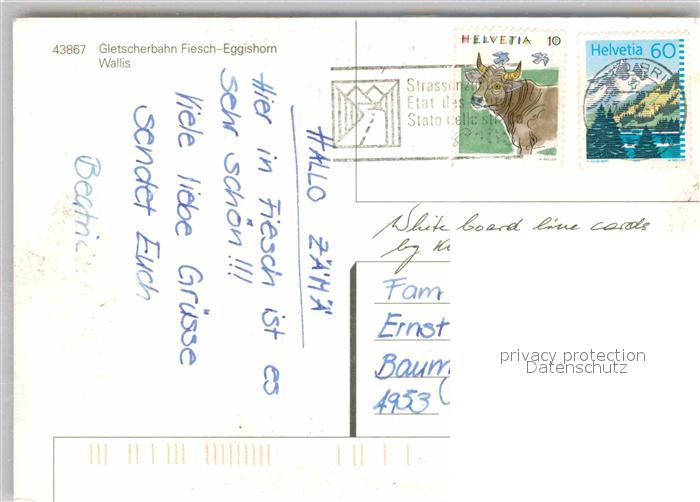 43867 Gletscherbahn Fiesch-Eggishorn
Wallis
HALLO ZÄMÄ
Hier in Fiesch ist es
sehr schön!!!
Viele liebe Grüsse
sendet Euch
HELVETIA 10
Helvetia 60
Etat des
Stato delle
White board line cards
by
Fam
Ernst
Baum
4953
privacy protection
Datenschutz